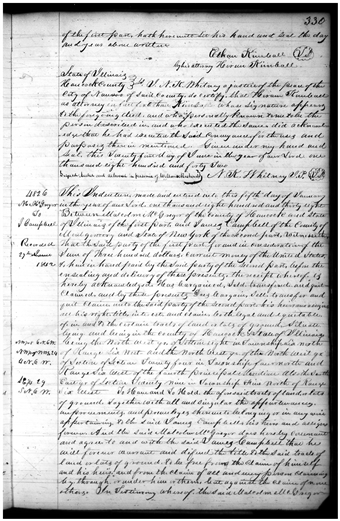 330
of the first part, hath hereunto set his hand and seal the day
and year as above written
Ethan Kimball
by his attorney Hiram Kimball
State of Illinois
Hancock County
I N. K. Whitney a justice of the peace of the
City of Nauvoo in said County do certify that Hiram Kimball
as attorney in fact for Ethan Kimball whose signature appears
to the foregoing deed, and who is personally known to me to be the
person described in and who executed the same did acknow
ledge that he had executed the said Conveyance for the uses and
purposes therein mentioned. Given under my hand and
seal, this Twenty third day of January in the year of our Lord one
thousand eight hundred and forty two
N. K. Whitney
4826
To
J Campbell
Recorded
27th
1842
This Indenture, made and entered into this fifth day of January
in the year of our Lord one thousand eight hundred and thirty eight
Between Malcolm McGregor of the County of Hancock and State
of Illinois of the first part and James Campbell of the County of
Montgomery and State of New York of the second part, Witnesseth
that the said party of the first part for and in consideration of the
sum of Three hundred dollars current money of the United States
to him in hand paid by the said party of the second part, before the
ensealing and delivery of these presents, the receipt whereof is
hereby acknowledged, Has bargained, sold, transferred, and quit
claimed, and by these presents Does bargain, sell, transfer and
quit claim unto the said party of the second part his heirs and assigns
all his right, title, interest, and claim both legal and equitable
of in and to the certain tracts of land or lots of ground situate
lying and being in the County of Hancock & State of Illinois
being the North West qr of Section eight in Township six north
of Range six West And the North West qr of the North West qr
of Section of Section Twenty four in Township four north and
Range six West of the fourth principal Meridian Also the South
East qr of Section Twenty nine in Township six North of Range
six West To Have and To Hold the aforesaid tracts of land or lots
of ground together with all and singular the appurtenances
and privileges thereunto belonging or in any wise
appertaining to the said James Campbell his heirs and assigns
forever And the said Malcolm McGregor does hereby covenant
and agree to and with the said James Campbell that he
will forever warrant and defend the title to the said tracts of
land or lots of ground to be free from the claim of himself
and his heirs and from the claim of all and any person claiming
by through or under him or them but against the claim of none
others In Testimony whereof the said Malcolm McGregor